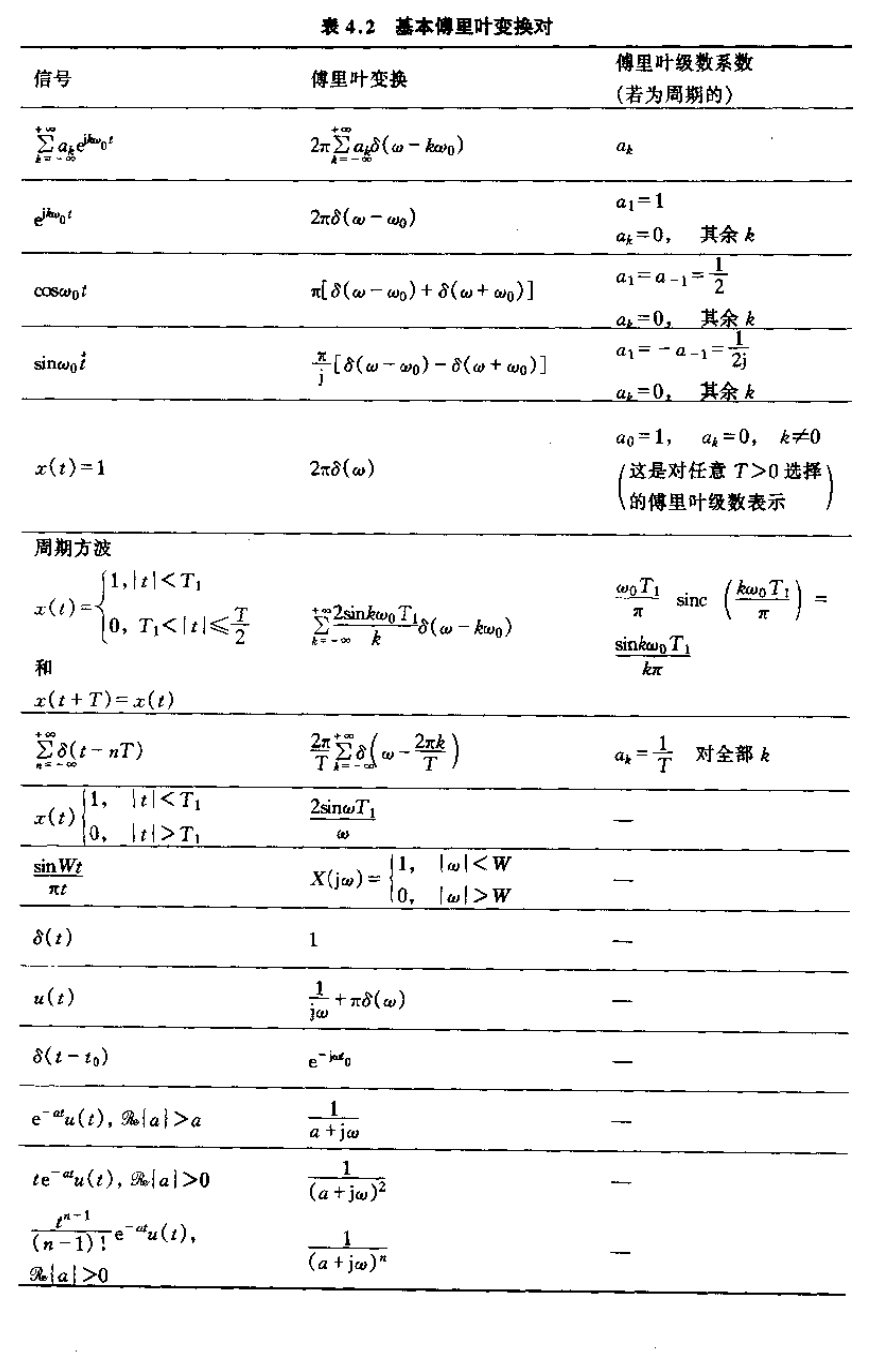 表 4.2 基本傅里叶变换对
信号 傅里叶变换 傅里叶级数系数
(若为周期的)
∑_{k=-∞}^{+∞} a_k e^{jkω₀t} 2π∑_{k=-∞}^{+∞} a_kδ(ω-kω₀) a_k
e^{jkω₀t} 2πδ(ω-ω₀) a₁=1
a_k=0, 其余 k
cosω₀t π[δ(ω-ω₀)+δ(ω+ω₀)] a₁=a₋₁=1/2
a_k=0, 其余 k
sinω₀t π/j[δ(ω-ω₀)-δ(ω+ω₀)] a₁=-a₋₁=1/2j
a_k=0, 其余 k
a₀=1, a_k=0, k≠0
x(t)=1 2πδ(ω) (这是对任意 T>0 选择
的傅里叶级数表示)
周期方波
x(t)={1,|t|<T₁
0, T₁<|t|≤T/2 ∑_{k=-∞}^{+∞} 2sinkω₀T₁/k δ(ω-kω₀) ω₀T₁/π sinc (kω₀T₁/π) =
sinkω₀T₁/kπ
和
x(t+T)=x(t)
∑_{n=-∞}^{+∞} δ(t-nT) 2π/T ∑_{k=-∞}^{+∞} δ(ω-2πk/T) a_k=1/T 对全部 k
x(t){1, |t|<T₁
0, |t|>T₁ 2sinωT₁/ω —
sinWt/πt X(jω)={1, |ω|<W
0, |ω|>W —
δ(t) 1 —
u(t) 1/jω+πδ(ω) —
δ(t-t₀) e^{-jωt₀} —
e^{-at}u(t), ℛe{a}>a 1/(a+jω) —
te^{-at}u(t), ℛe{a}>0 1/(a+jω)² —
t^{n-1}/(n-1)! e^{-at}u(t),
ℛe{a}>0 1/(a+jω)ⁿ —